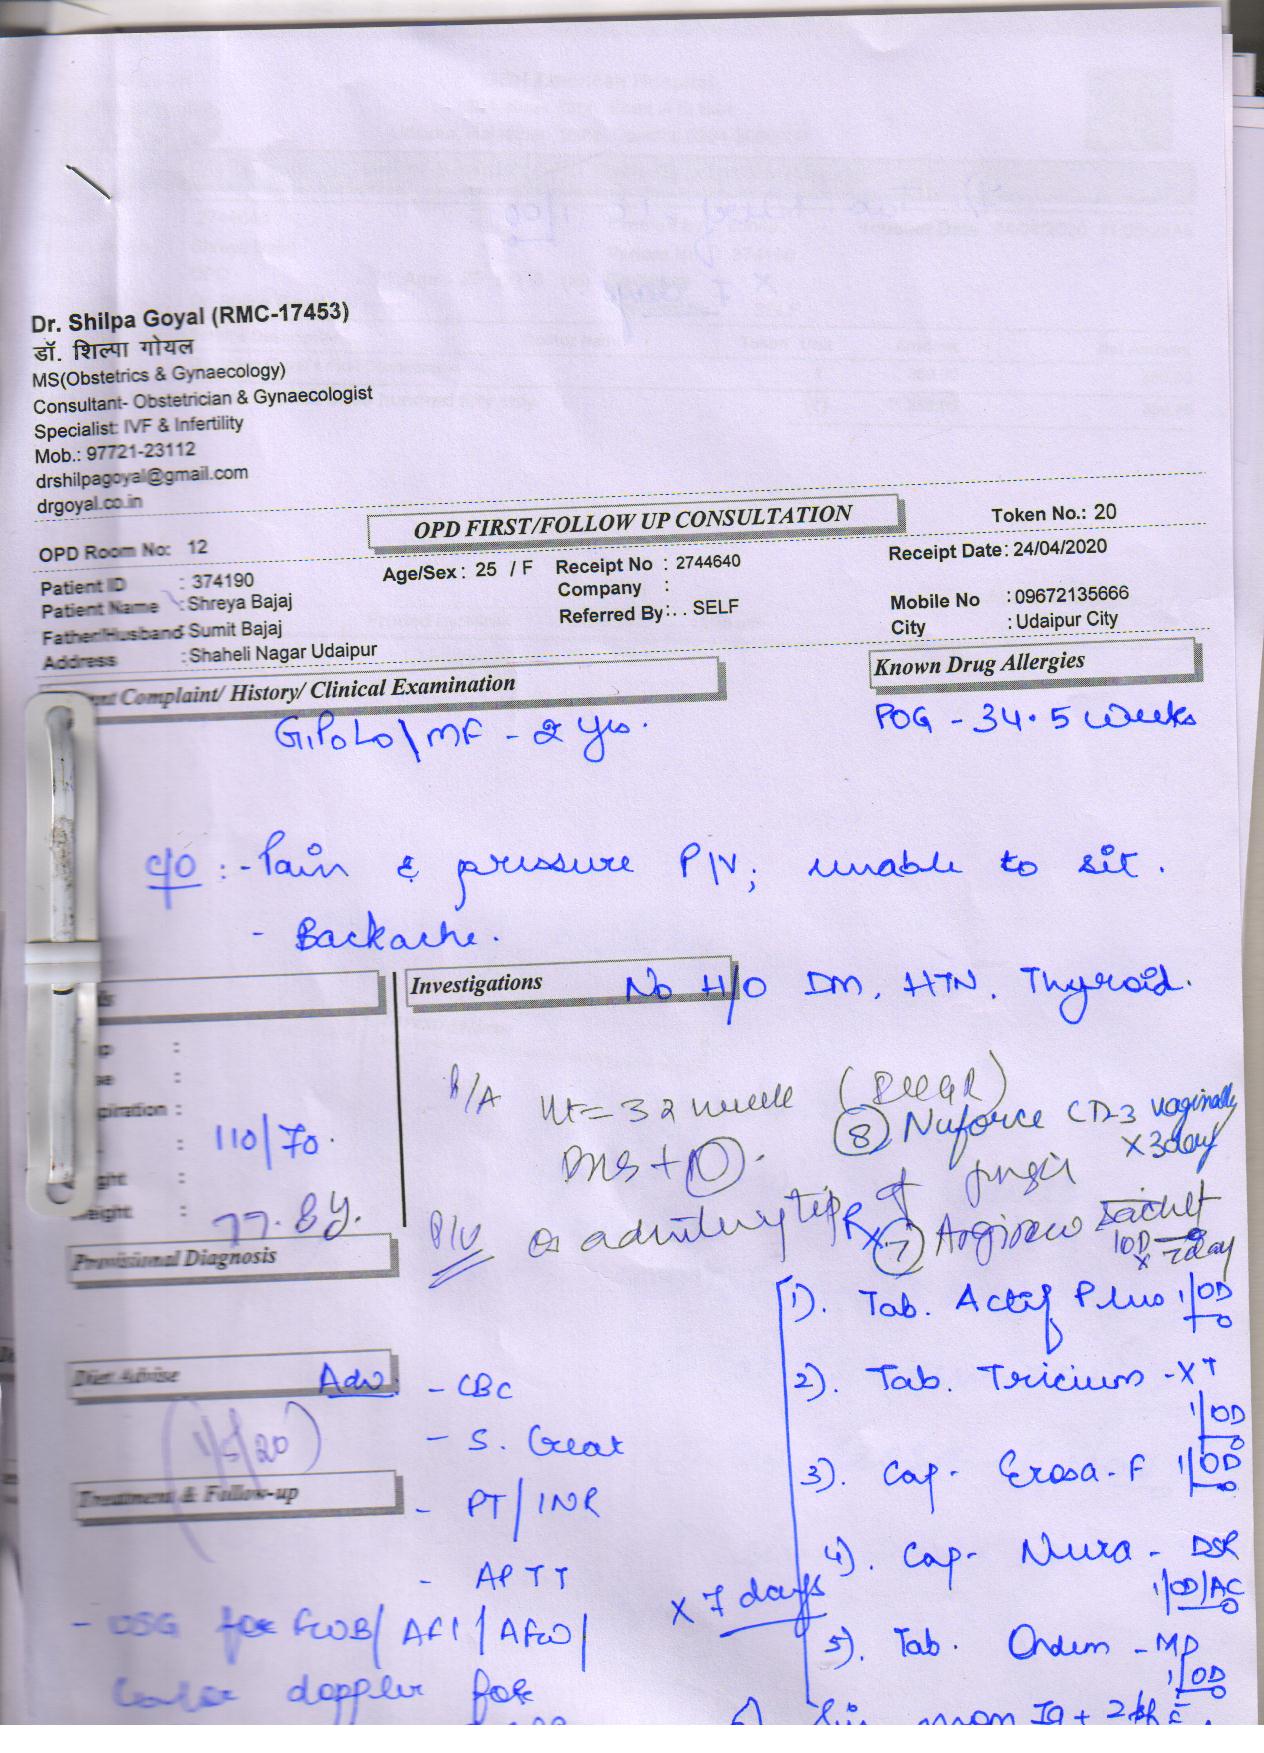 Dr. Shilpa Goyal (RMC-17453)
डॉ. शिल्पा गोयल
MS(Obstetrics & Gynaecology)
Consultant- Obstetrician & Gynaecologist
Specialist: IVF & Infertility
Mob.: 97721-23112
drshilpagoyal@gmail.com
drgoyal.co.in
OPD FIRST/FOLLOW UP CONSULTATION
Token No.: 20
OPD Room No: 12
Patient ID : 374190
Age/Sex : 25 / F
Receipt No : 2744640
Receipt Date: 24/04/2020
Patient Name : Shreya Bajaj
Company :
Mobile No : 09672135666
Father/Husband: Sumit Bajaj
Referred By: . . SELF
City : Udaipur City
Address : Shaheli Nagar Udaipur
Complaint/ History/ Clinical Examination
Known Drug Allergies
G1P0L0\MF - 2 yrs.
POG - 34.5 weeks
c/o :- Pain & pressure P/V; unable to sit.
- Backache.
Investigations
No H/O DM, HTN, Thyroid.
P/A
Ut = 32 week
(8) Nuforce CD-3 vaginally
x 3day
110/70.
77.8
P/V
tip of finger
Rx
7) sachet
1OD x 7day
Provisional Diagnosis
1). Tab. Actif Plus 1/OD
2). Tab. Tricium - XT
1/OD
Diet Advise
Adv.
- CBC
- S. Creat
(1/5/20)
3). Cap- Erosa-F 1/OD
Treatment & Follow-up
- PT/INR
- APTT
4). Cap- Nura - DSR
1/OD/AC
x 7 days
- USG for FWB/ AFI / AFW/
5). Tab. Ondem - MD
1/OD
Color doppler for
6)